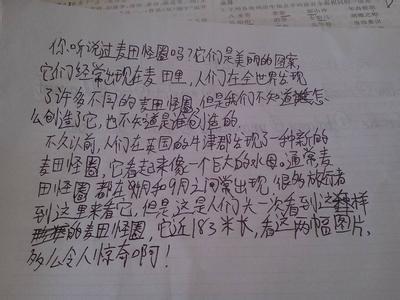 你听说过麦田怪圈吗？它们是美丽的图案，
它们经常出现在麦田里，人们在全世界发现
了许多不同的麦田怪圈，但是我们不知道怎
么创造了它，也不知道是谁创造的。
不久以前，人们在英国的牛津郡发现了一种新的
麦田怪圈，它看起来像一个巨大的水母。通常麦
田怪圈都在4月和9月之间常出现，很多旅行者
到这里来看它，但是这是人们头一次看到这样
的麦田怪圈，它近183米长，看这两幅图片，
多么令人惊奇啊！